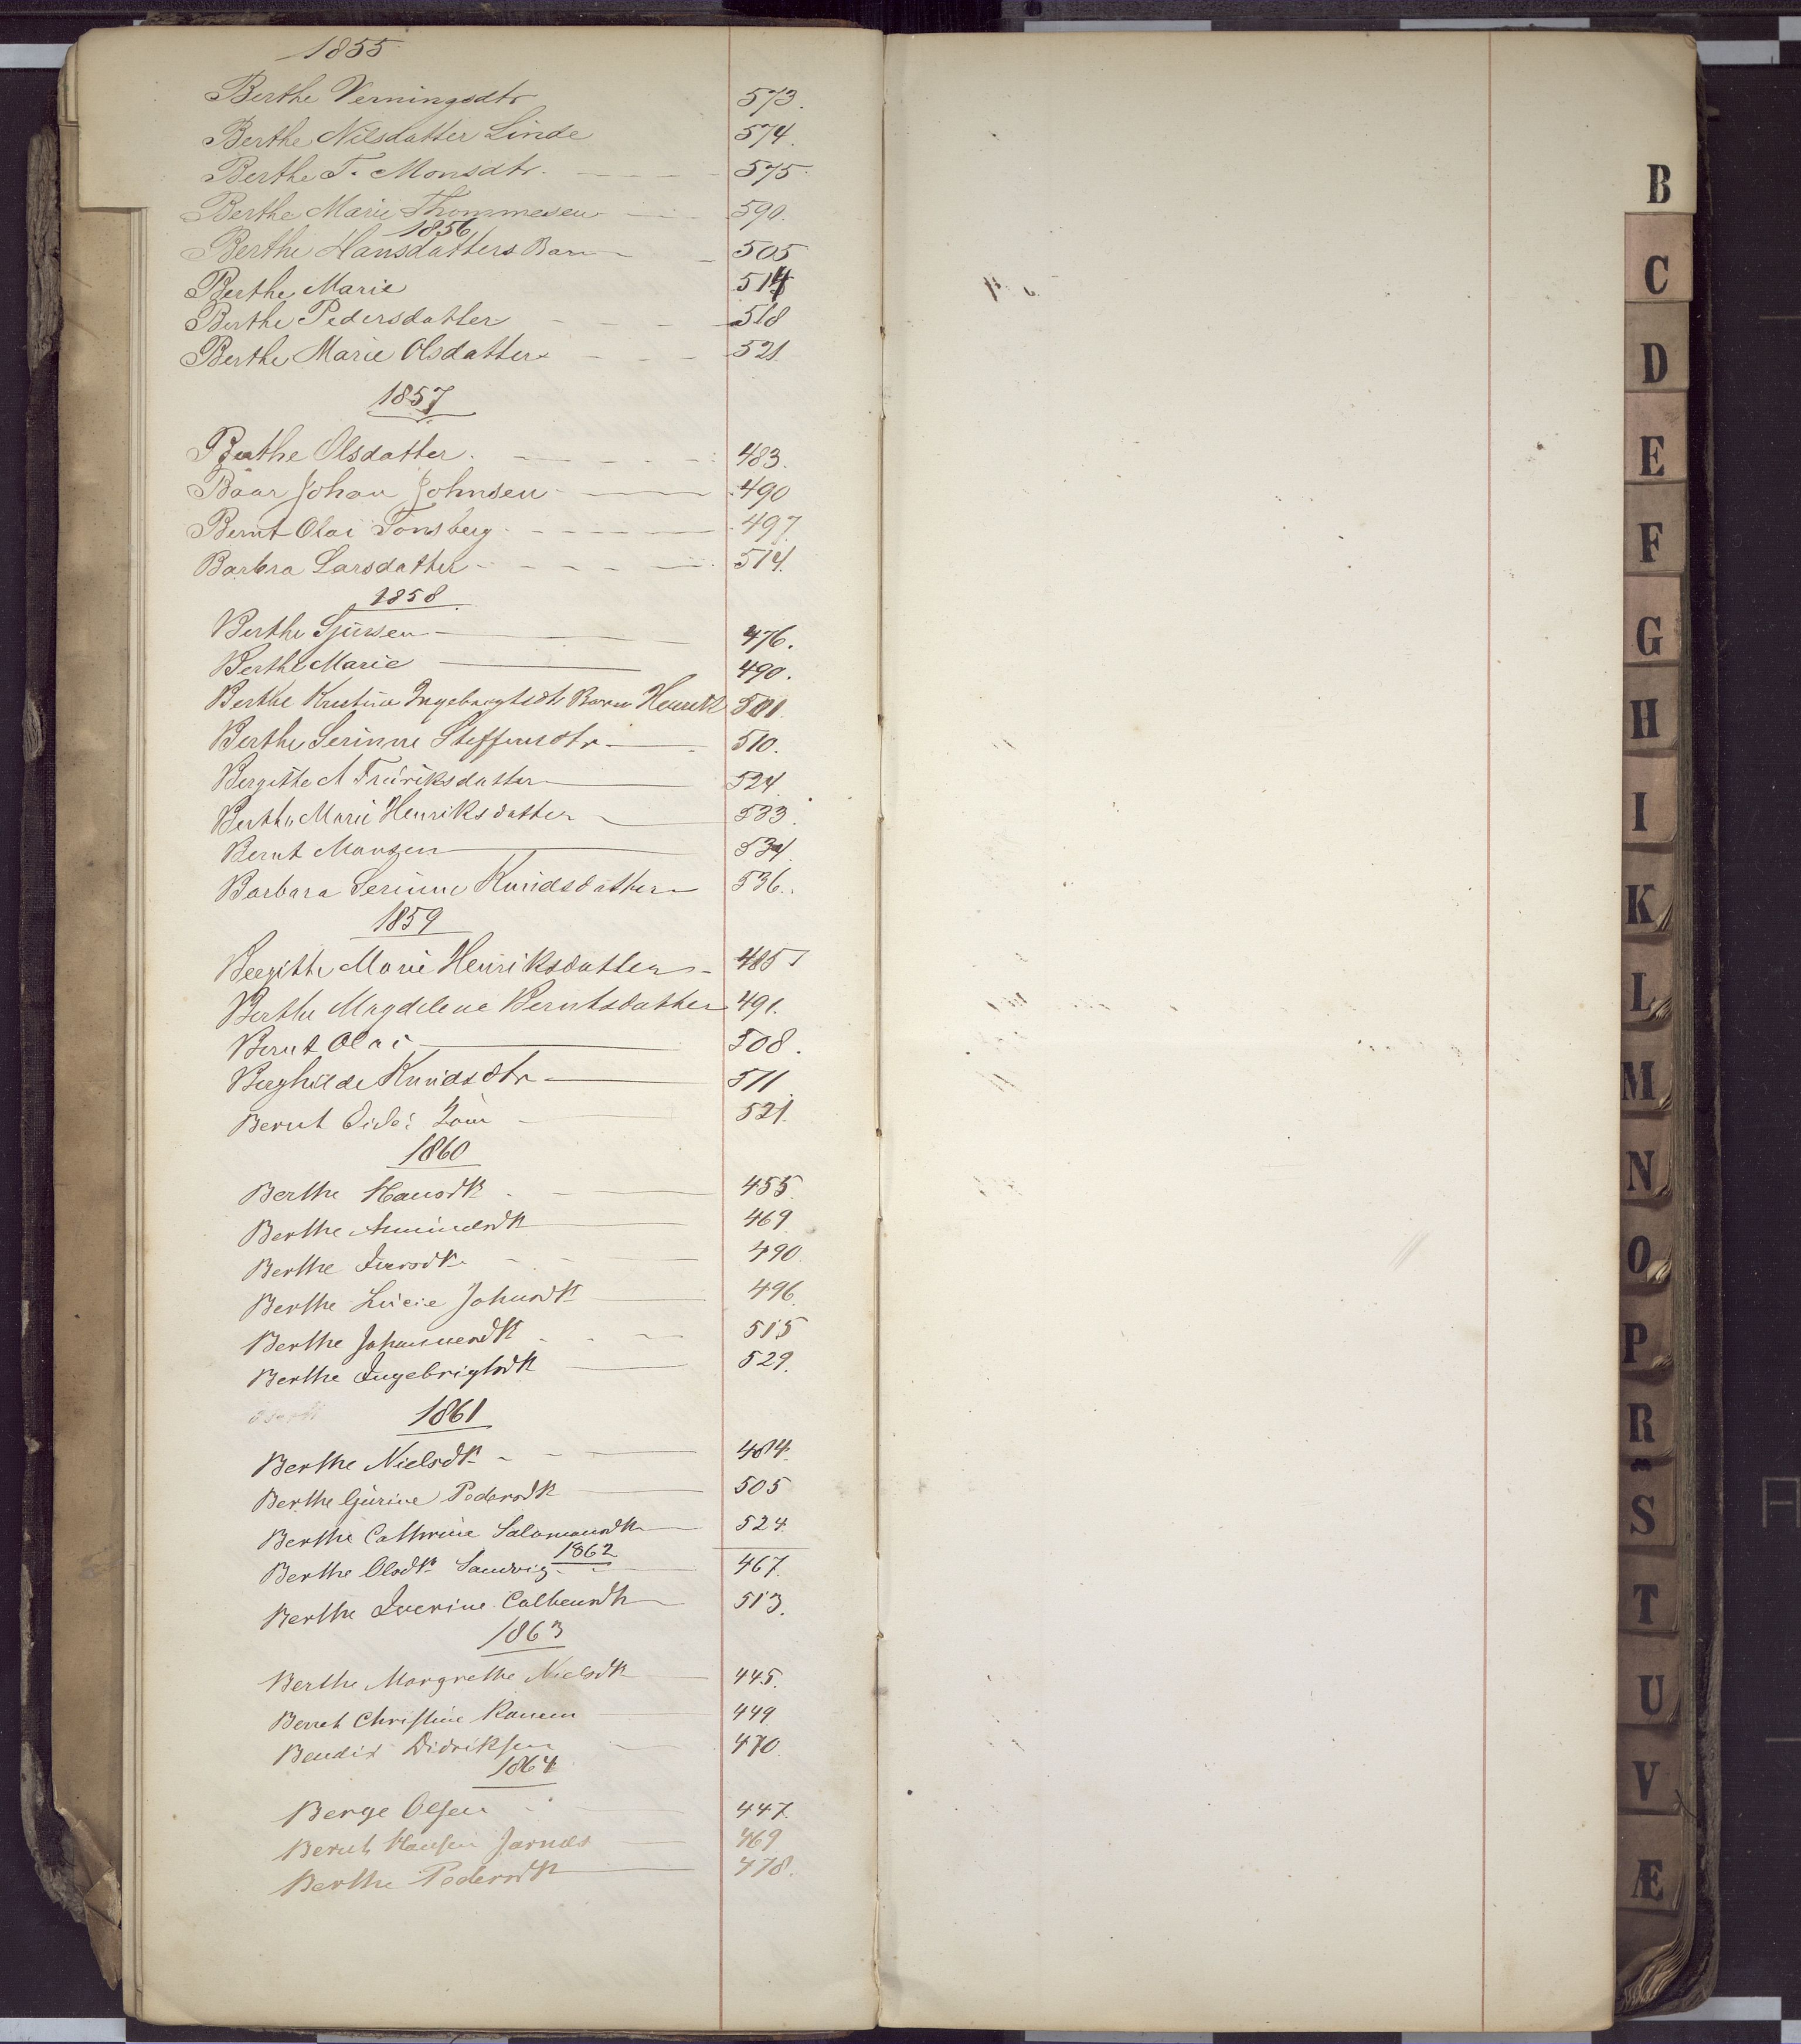 1855
Berthe Verningsdtr 573.
Berthe Nilsdatter Linde 574.
Berthe T. Monsdtr. 575.
Berthe Marie Thommesen 590.
1856
Berthe Hansdatters Barn 505
Berthe Marie 514
Berthe Pedersdatter 518
Berthe Marie Olsdatter 521.
1857
Berthe Olsdatter. 483.
Baar Johan Johnsen 490
Bernt Olai Tonsberg 497.
Barbra Larsdatter 514.
1858
Berthe Sjursen 476.
Berthe Marie 490.
Berthe Kristine Ingebregtsdtr Barn Henrik 501.
Berthe Serinne Steffensdtr 510.
Bergitte A Fredriksdatter 524.
Berthe Marie Henriksdatter 533.
Bernt Monsen 534.
Barbara Serinne Knudsdatter 536.
1859
Bergitte Marie Henriksdatter 485
Berthe Magdelene Berntsdatter 491.
Bernt Olai 508.
Berghilde Knudsdtr 511
Bernt 521.
1860
Berthe Hansdtr 455.
Berthe Amundsdtr 469
Berthe Iversdtr. 490.
Berthe Lucie Johnsdtr 496.
Berthe Johannesdtr 515
Berthe Ingebrigtsdtr 529.
1861
Berthe Nielsdtr 484.
Berthe Gurine Pedersdtr 505
Berthe Cathrine Salomonsdtr 524.
1862
Berthe Olsdtr Sandvig 467.
Berthe Iverine Colbensdtr 513.
1863
Berthe Margrethe Nielsdtr 445.
Berret Christine 449.
Bendix Didriksen 470.
1864
Berge Olsen 447.
Bernt Hansen Jarnæs 469
Berthe Pedersdtr 478.
B
C
D
E
F
G
H
I
K
L
M
N
O
P
R
S
T
U
V
Æ